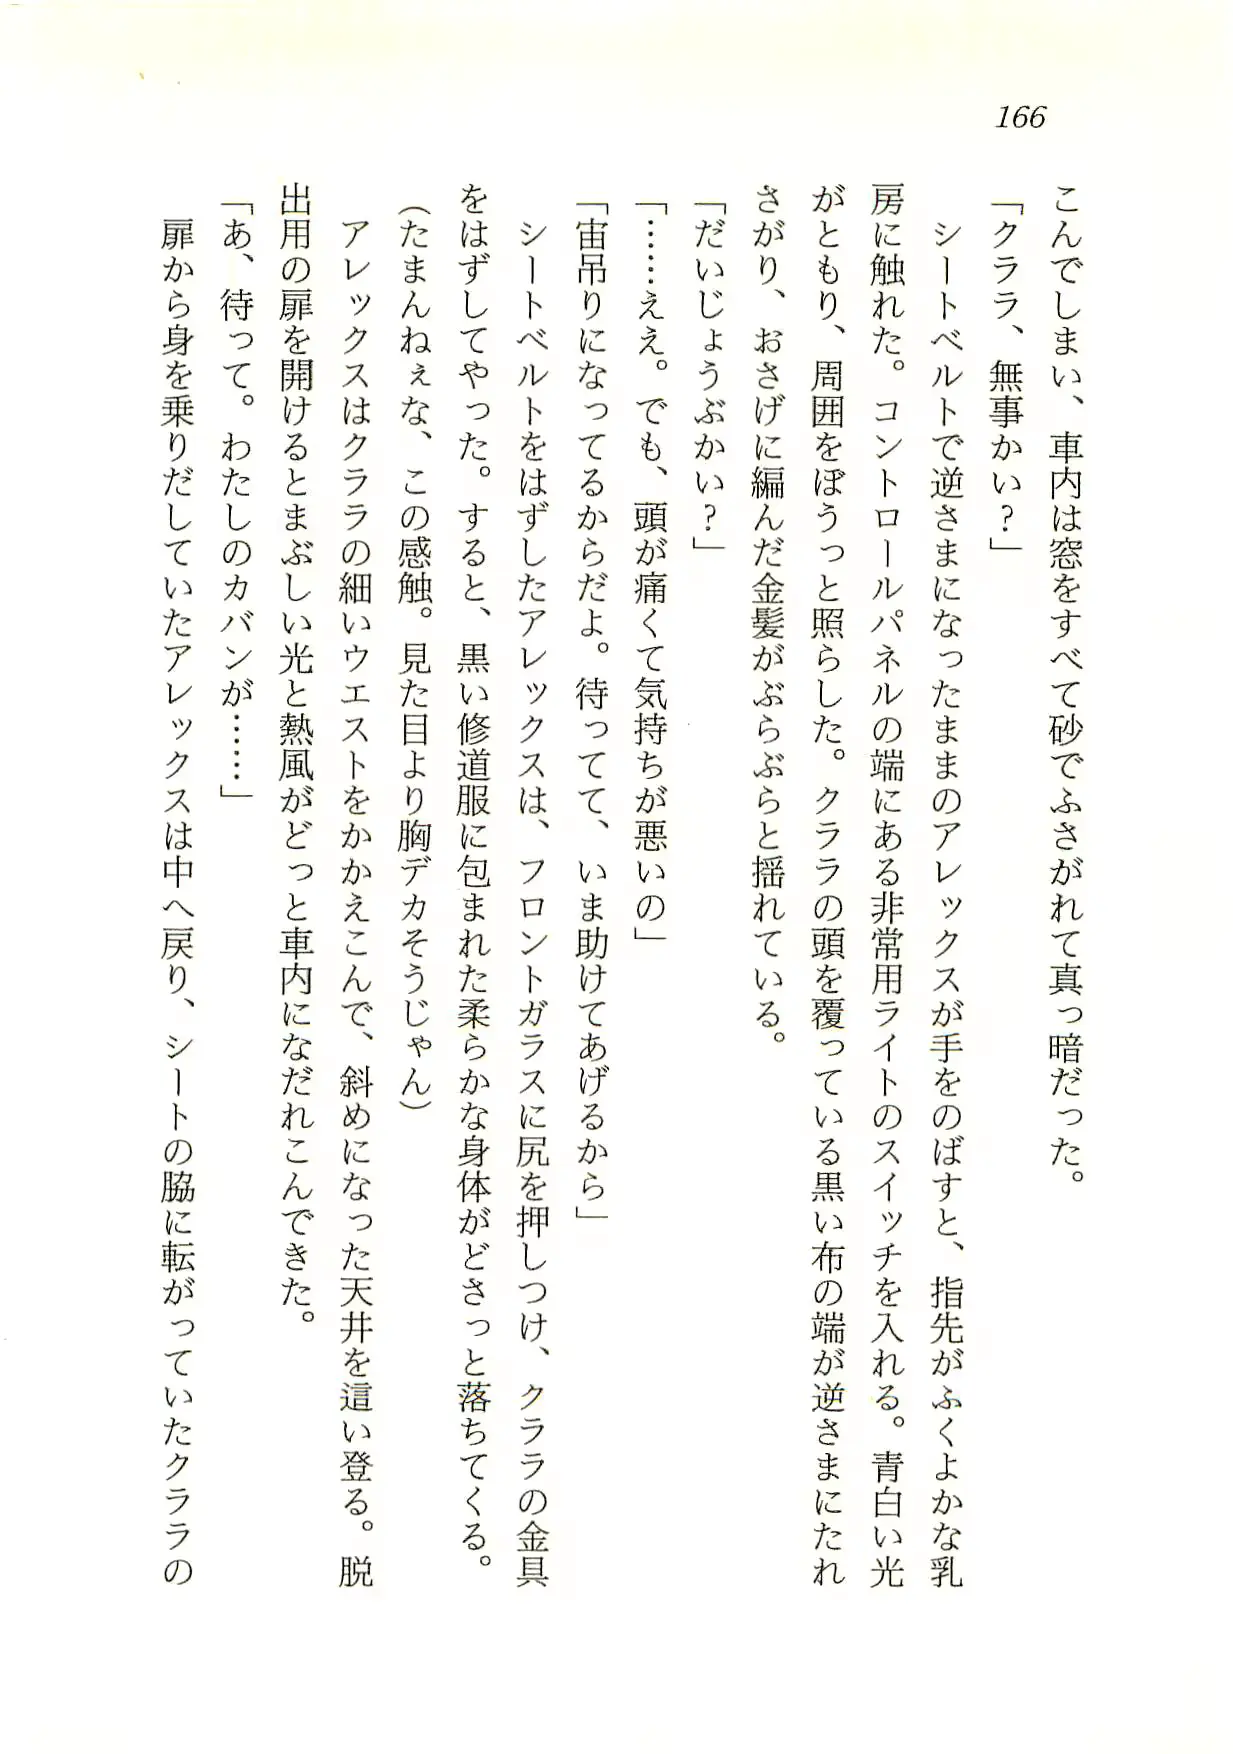 166
こんでしまい、車内は窓をすべて砂でふさがれて真っ暗だった。
「クララ、無事かい？」
シートベルトで逆さまになったままのアレックスが手をのばすと、指先がふくよかな乳
房に触れた。コントロールパネルの端にある非常用ライトのスイッチを入れる。青白い光
がともり、周囲をぼうっと照らした。クララの頭を覆っている黒い布の端が逆さまにたれ
さがり、おさげに編んだ金髪がぶらぶらと揺れている。
「だいじょうぶかい？」
「……ええ。でも、頭が痛くて気持ちが悪いの」
「宙吊りになってるからだよ。待ってて、いま助けてあげるから」
シートベルトをはずしたアレックスは、フロントガラスに尻を押しつけ、クララの金具
をはずしてやった。すると、黒い修道服に包まれた柔らかな身体がどさっと落ちてくる。
（たまんねぇな、この感触。見た目より胸デカそうじゃん）
アレックスはクララの細いウエストをかかえこんで、斜めになった天井を這い登る。脱
出用の扉を開けるとまぶしい光と熱風がどっと車内になだれこんできた。
「あ、待って。わたしのカバンが……」
扉から身を乗りだしていたアレックスは中へ戻り、シートの脇に転がっていたクララの